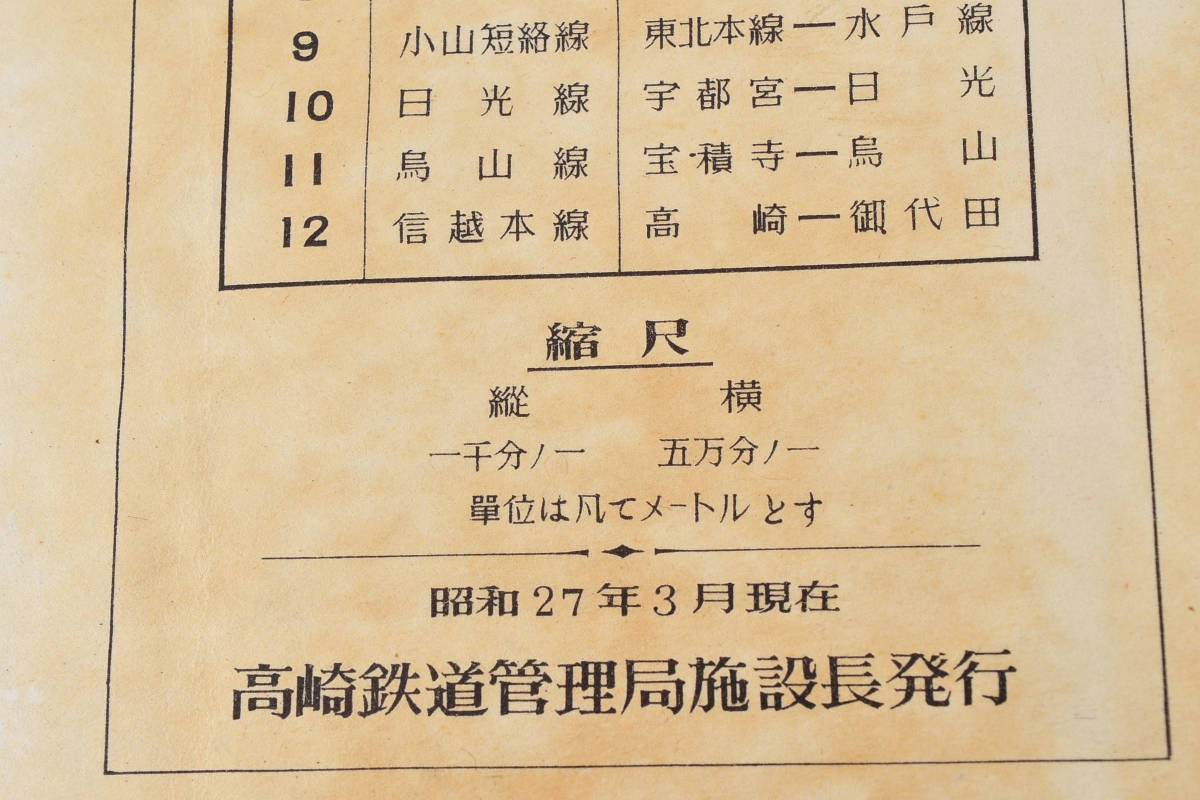 9 小山短絡線 東北本線ー水戸線
10 日光線 宇都宮ー日光
11 烏山線 宝積寺ー烏山
12 信越本線 高崎ー御代田
縮尺
縱 横
一千分ノ一 五万分ノ一
單位は凡てメートルとす
昭和27年3月現在
高崎鉄道管理局施設長発行